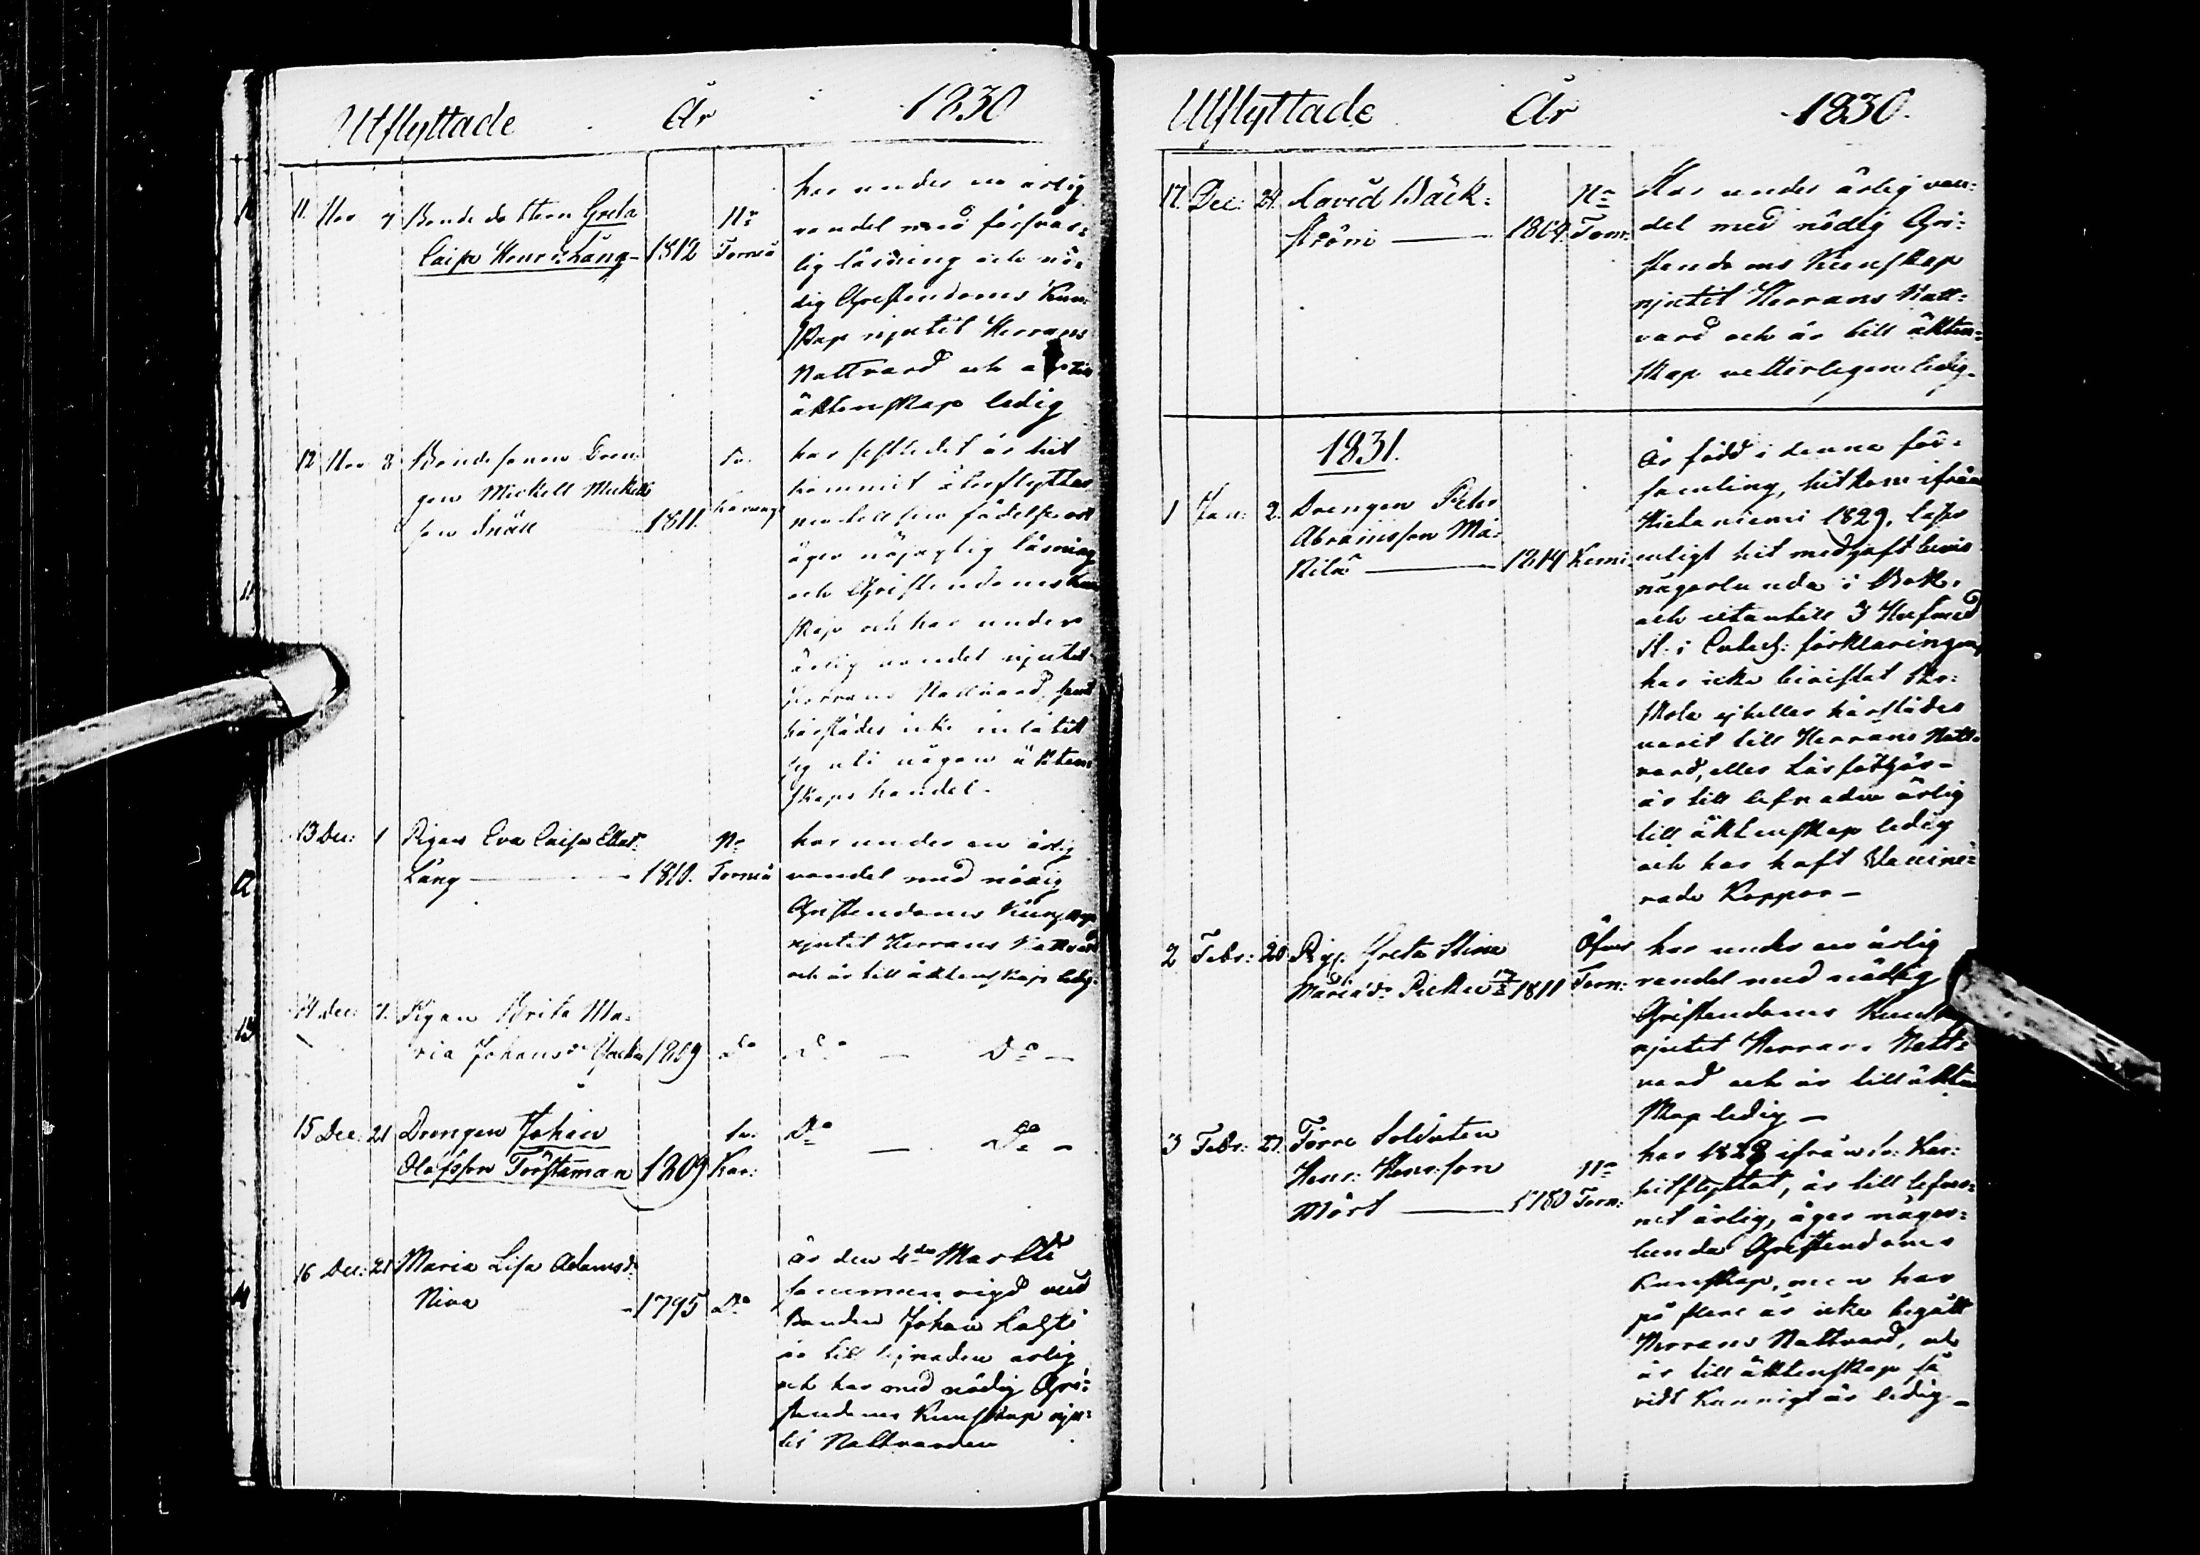 Utflyttade År 1830
11. Nov 7 Bonde dottern Greta
Caisa Henr:dr Lång 1812 Nr Torneå
har under en ärlig
vandel med försvar:
lig läsning och nö:
dig Christendoms Kun:
skap njutit Herrans
Nattvard och
äktenskap ledig
12 Nov 8 Bondesonen Dren
gen Mickell Mickells
son Snäll 1811.
har sistledet år hit
kommit återflyttar
nu till sin födelseort
äger nöjagtig läsning
och Christendoms Kun
skap och har under
ärlig vandel njutit
Herrans Nattvard, samt
härstädes icke inlåtit
sig uti någon äkten:
skaps handel.
13 Dec: 1 Pigan Eva Caisa
Lång 1810. Nr Torneå
har under en ärlig
vandel med nödig
Christendoms Kunskap
njutit Herrans Nattvard
och är till äktenskap ledig.
14 Dec: 7. Pigan Brita Ma:
ria Johansdr 1809 Do Do — Do —
15 Dec: 21 Drengen Johan
Olofsson Törstaman 1809 Kar: Do — Do —
16 Dec: 21 Maria Lisa Adamsdr
Niva 1795 Do
är den 4de
sammanvigd med
Bonden Johan Lahti
är till lefnaden ärlig
och har med nödig Chri:
stendoms Kunskap nju:
tit Nattvarden
Utflyttade År 1830.
17. Dec: 29. David Bäck:
ström — Nr Torn:
Har under ärlig van:
del med nödig Chri:
stendoms Kunskap
njutit Herrans Natt:
vard och är till äkten:
skap veterligen ledig.
1831.
1 Jan: 2. Drengen Petter
Abramsson Mä:
kilä — 1814 Kemi
är född i denna för:
samling, hitkom ifrån
Hietaniemi 1829, läser
enligt hit medhaft bevis
någorlunda i Bok,
och utantill 3 Hufvud
St: i Catech: förklaringen
har icke bevistat Skr:
skola ej heller härstädes
varit till Herrans Natt:
vard, eller Läsförhör —
är till lefnaden ärlig
till äktenskap ledig
och har haft Vaccine:
rade Koppor —
2 Febr: 20 Pig. Greta Stina
1811 Öfver Torn:
har under en ärlig
vandel med nödig
Christendoms Kunskap
njutit Herrans Natt:
vard och är till äkten
skap ledig —
3 Febr: 27. Förre Soldaten
Henr: Henrsson
Mört — 1780 Nr Torn:
har 1828 ifrån Kar:
hitflyttat, är till lefver:
net ärlig, äger någor:
lunda Christendoms
Kunskap, men har
på flere år icke begått
Herrans Nattvard, och
är till äktenskap så
vidt kunnigt är ledig —